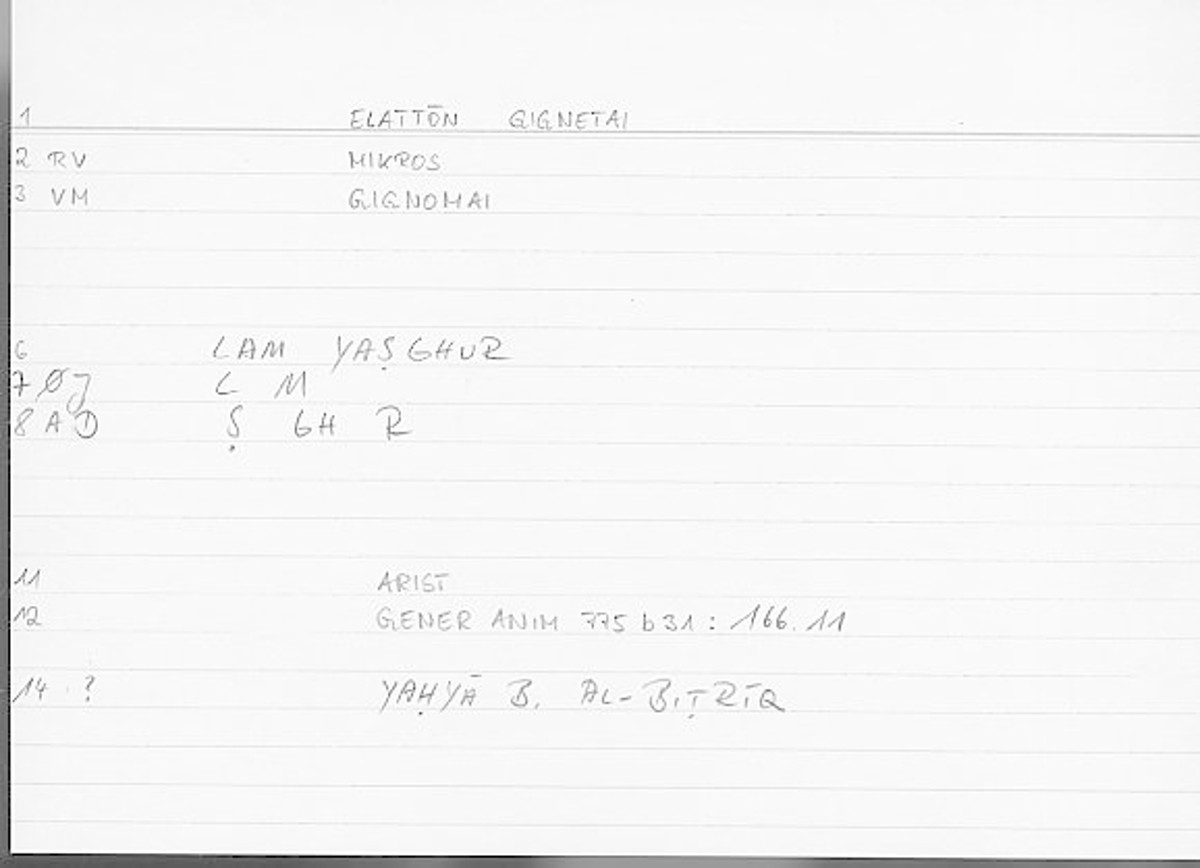 1 ELATTŌN GIGNETAI
2 RV MIKROS
3 VM GIGNOMAI
6 LAM YAṢGHUR
7 ØJ L M
8 AD Ṣ GH R
11 ARIST
12 GENER ANIM 775 b 31 : 166.11
14 ? YAḤYĀ B. AL-BIṬRĪQ